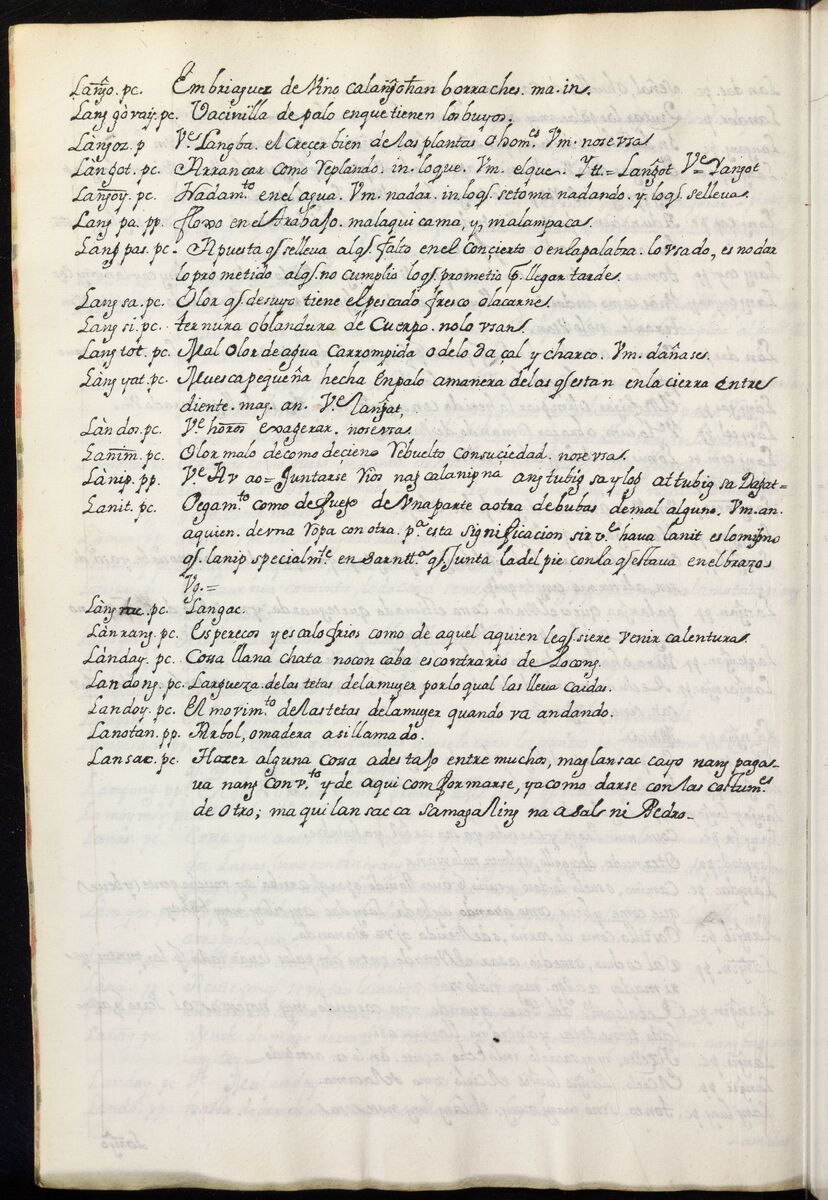 Lang̃o. pc. Embriaguez de Vino calang̃ohan borraches. ma. in.
Lang gòvay. pc. Vacinilla de palo en que tienen los buyos.
Làngoz. p Ve. Langba. el creçer bien de las plantas o homes. Vm. nose vsa
Làngot. pc. Arrancar como Replando. in. loque. Vm. elque. Ytt.= Lang̃ot Ve= Yangot
Lang̃oy. pc. Nadamto. en el agua. Vm. nadar. in. loq̃. setoma nadando. y. loq̃. selleva.
Lang pa. pp. floxo en el trabajo. malaqui cama, y, malampaca.
Làng pas. pc. Apuesta q̃ selleva alq̃ falto en el Conçierto o enlapalabra. lo vsado, es nodar
lo prometido alq̃. no cumplio loq̃. prometio p. llegar tarde.
Lang sa. pc. Olor q̃. de suyo tiene el pescado fresco olacarne.
Lang si. pc. ternura o blandura de Cuerpo. nolo vsan.
Lang tot. pc. Mal Olor de agua Carrompida o delo da çal y charco. Vm. dañase.
Làng yat. pc. Muesca pequeña hecha en palo amanera de las q̃ estan en la cierra entre
diente. mag. an. Ve. lang̃at.
Làn dos. pc. Ve. horon exagerar. nose vsa.
Lanim. pc. Olor malo de como deçieno Rebuelto consuçiedad. nose vsa.
Lànip. pp. Ve Av ao= Juntarse Rios nag calanip na ang tubig sa ylog at tubig sa Dagat=
Lanit. pc. Pegamto. como de fuego de Vna parte a otra de bubas demal alguno. Vm. an.
aquien. de vna Ropa con otra. pa. esta significacion sirve. hava lanit es lo mismo
q̃. lanip specialmte. en q̃. Junta la del pie con la q̃ estava en el brazo
Vg.=
Làng pc. Langac.
Lànrang. pc. Esperecos y escalofrios como de aquel aquien le q̃. siere venir calentura.
Lànday. pc. Cossa llana chata nocon caba es contrario de Locong.
Landong. pc. Largueza. de las tetas de la muger por lo qual las lleva Caidas.
Landoy. pc. El movimto. de las tetas de la muger quando va andando.
Lanotan. pp. Arbol, o madera asillamado.
Lansac. pc. Hazer alguna cossa adestajo entre muchos, maglansac cayo nang paga-
ua nang Con vto. y de aqui comformarse, ya como darse con las costumes.
de otro; ma quilansac ca sa magaling na asal ni Pedro-